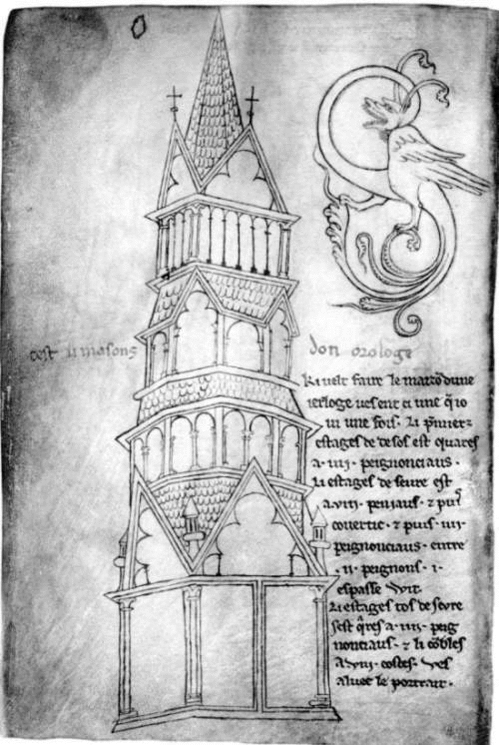 O
cest li masons don orologe
Ki velt faire le maizō dune
ierloge ves ent ci une q̃ io
vi une fois. Li p̃miers
estages de desos est quares
a .iiij. peignonciaus.
li estages de seure est
a .viij. peniaus. ⁊ puiſ
covertic. ⁊ puis .iiij.
peignonciaus. entre
.ij. peignons .i.
espasse wit.
Li estages tos de seure
sest q̃res a .iiij. peig
nonciaus. ⁊ li cōbles
a .viij. costes. Ves
aluec le portrait.